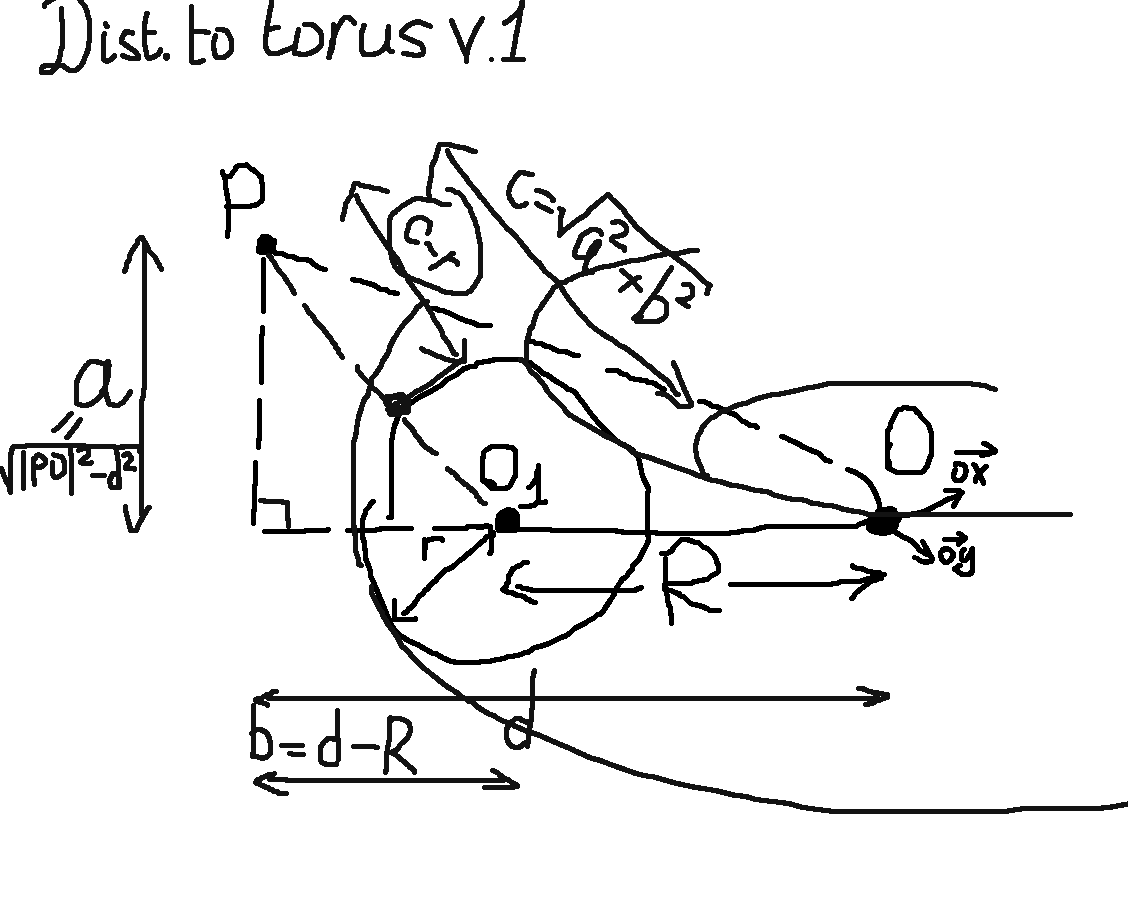 Dist. to torus v.1
P
c-r
c=√a²+b²
a
=
√|PO|²-d²
O
O₁
OX
OY
r
R
d
b=d-R